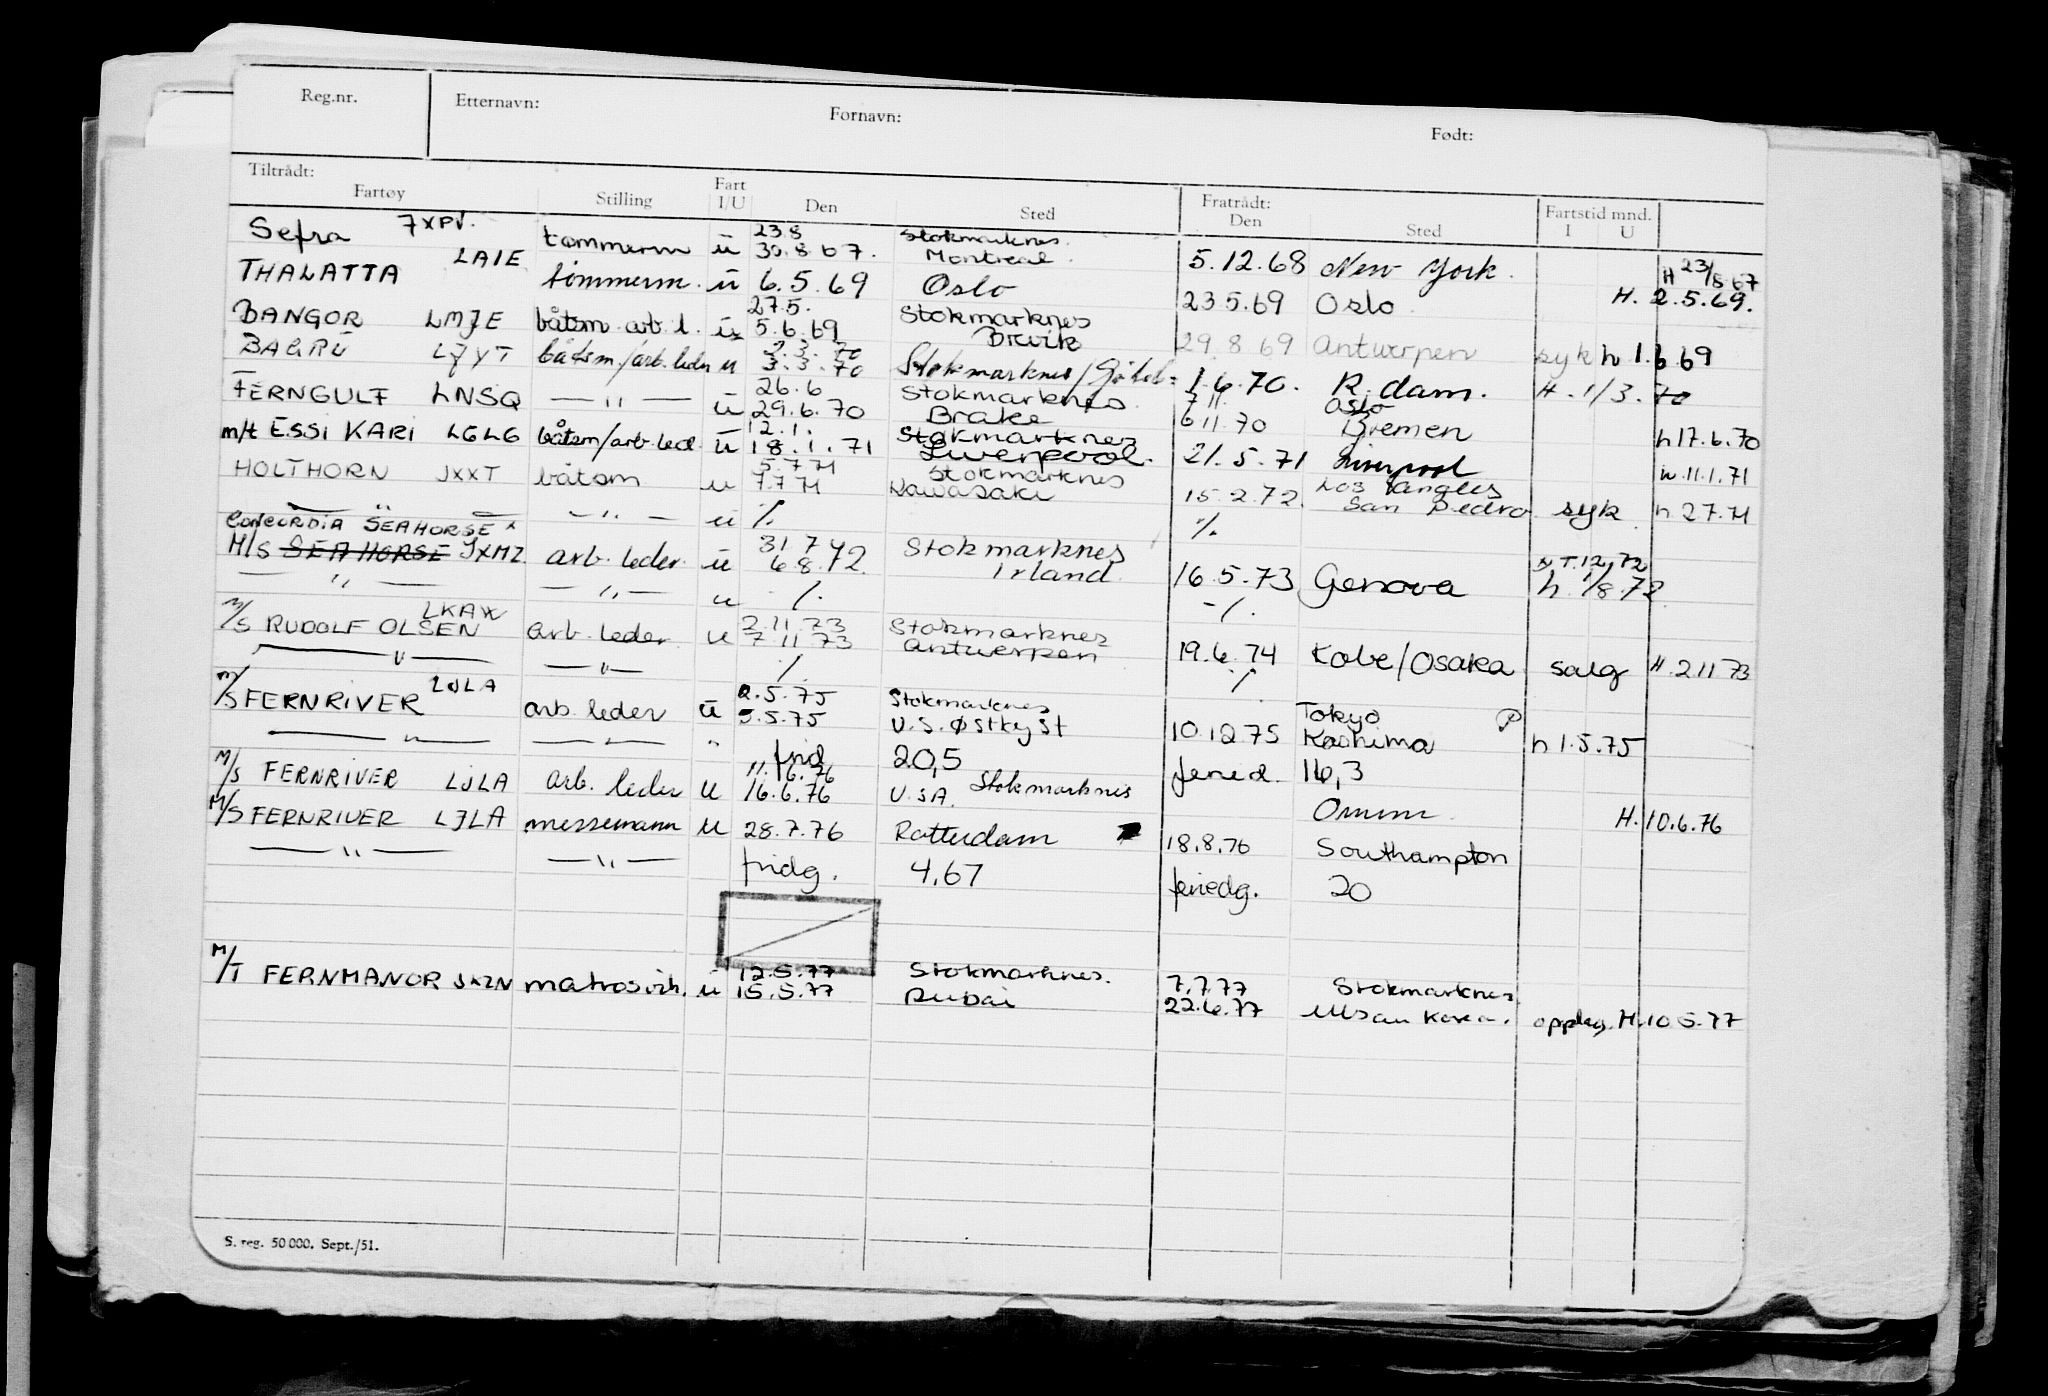 Reg.nr. Etternavn: Fornavn: Født:
Tiltrådt: Fratrådt:
Fartøy Stilling Fart I/U Den Sted Den Sted Fartstid mnd. I U
23.8 Stokmarknes.
Sefra JXPV. tømmerm ü 30.8.67. Montreal. 5.12.68 New York. H 23/8 67
THALATTA LAIE tømmerm. ü 6.5.69 Oslo 23 5.69 Oslo H. 2.5.69.
27.5. Stokmarknes
BANGOR LMJE båtsm arb. l. ü 5.6.69 Brevik 29.8 69 Antwerpen syk h 1.6 69
2.3.70
BAGRU LJYT båtsm/arb. leder u 3.3.70 Stokmarknes/ 1.6.70. R.dam. H. 1/3.70
26.6 Stokmarknes 7 11 Oslo
FERNGULF LNSQ — " — ü 29.6.70 Brake 6 11.70 Bremen h 17.6.70
12.1. Stokmarknes
m/t ESSI KARI LGLG båtsm/arb. led. ü 18.1.71 Liverpool. 21.5.71 Liverpool h. 11.1.71
5.7 71 Stokmarknes Los Angles
HOLTHORN JXXT båtsm u 7.7 71 Kawasaki 15.2.72. San Pedro syk h 27.71
— " — — " — ü %. %.
CONCORDIA SEAHORSE 31 7 72 Stokmarknes 12.72
M/S SEAHORSE JXMZ. arb. leder ü 6.8.72. Irland. 16.5.73 Genova h. 1/8.72
— " — — " — u -/. -/.
LKAW 2.11.73 Stokmarknes
M/S RUDOLF OLSEN arb. leder u 7.11 73 Antwerpen 19.6.74 Kobe/Osaka salg H. 2.11 73
— " — — " — /. /.
LJLA 2.5.75 Stokmarknes Tokyo
M/S FERNRIVER arb. leder ü 5.5.75 U.S. Østkyst 10.12.75 Kashima h 1.5.75
— " — — " — " frid 20,5 feried. 16,3
11.6.76 Stokmarknes
M/S FERNRIVER LJLA arb. leder u 16.6.76 U.S.A. Omm. H. 10.6.76
M/S FERNRIVER LJLA messemann u 28.7.76 Rotterdam 18.8.76 Southampton
— " — — " — fridg. 4,67 feriedg. 20
12.5.77 Stokmarknes. 7.7.77 Stokmarknes
M/T FERNMANOR JXZN matros ü 15.5.77 Dubai 22.6.77 Ulsan Korea. opplag. H. 10 5.77
S. reg. 50 000. Sept./51.